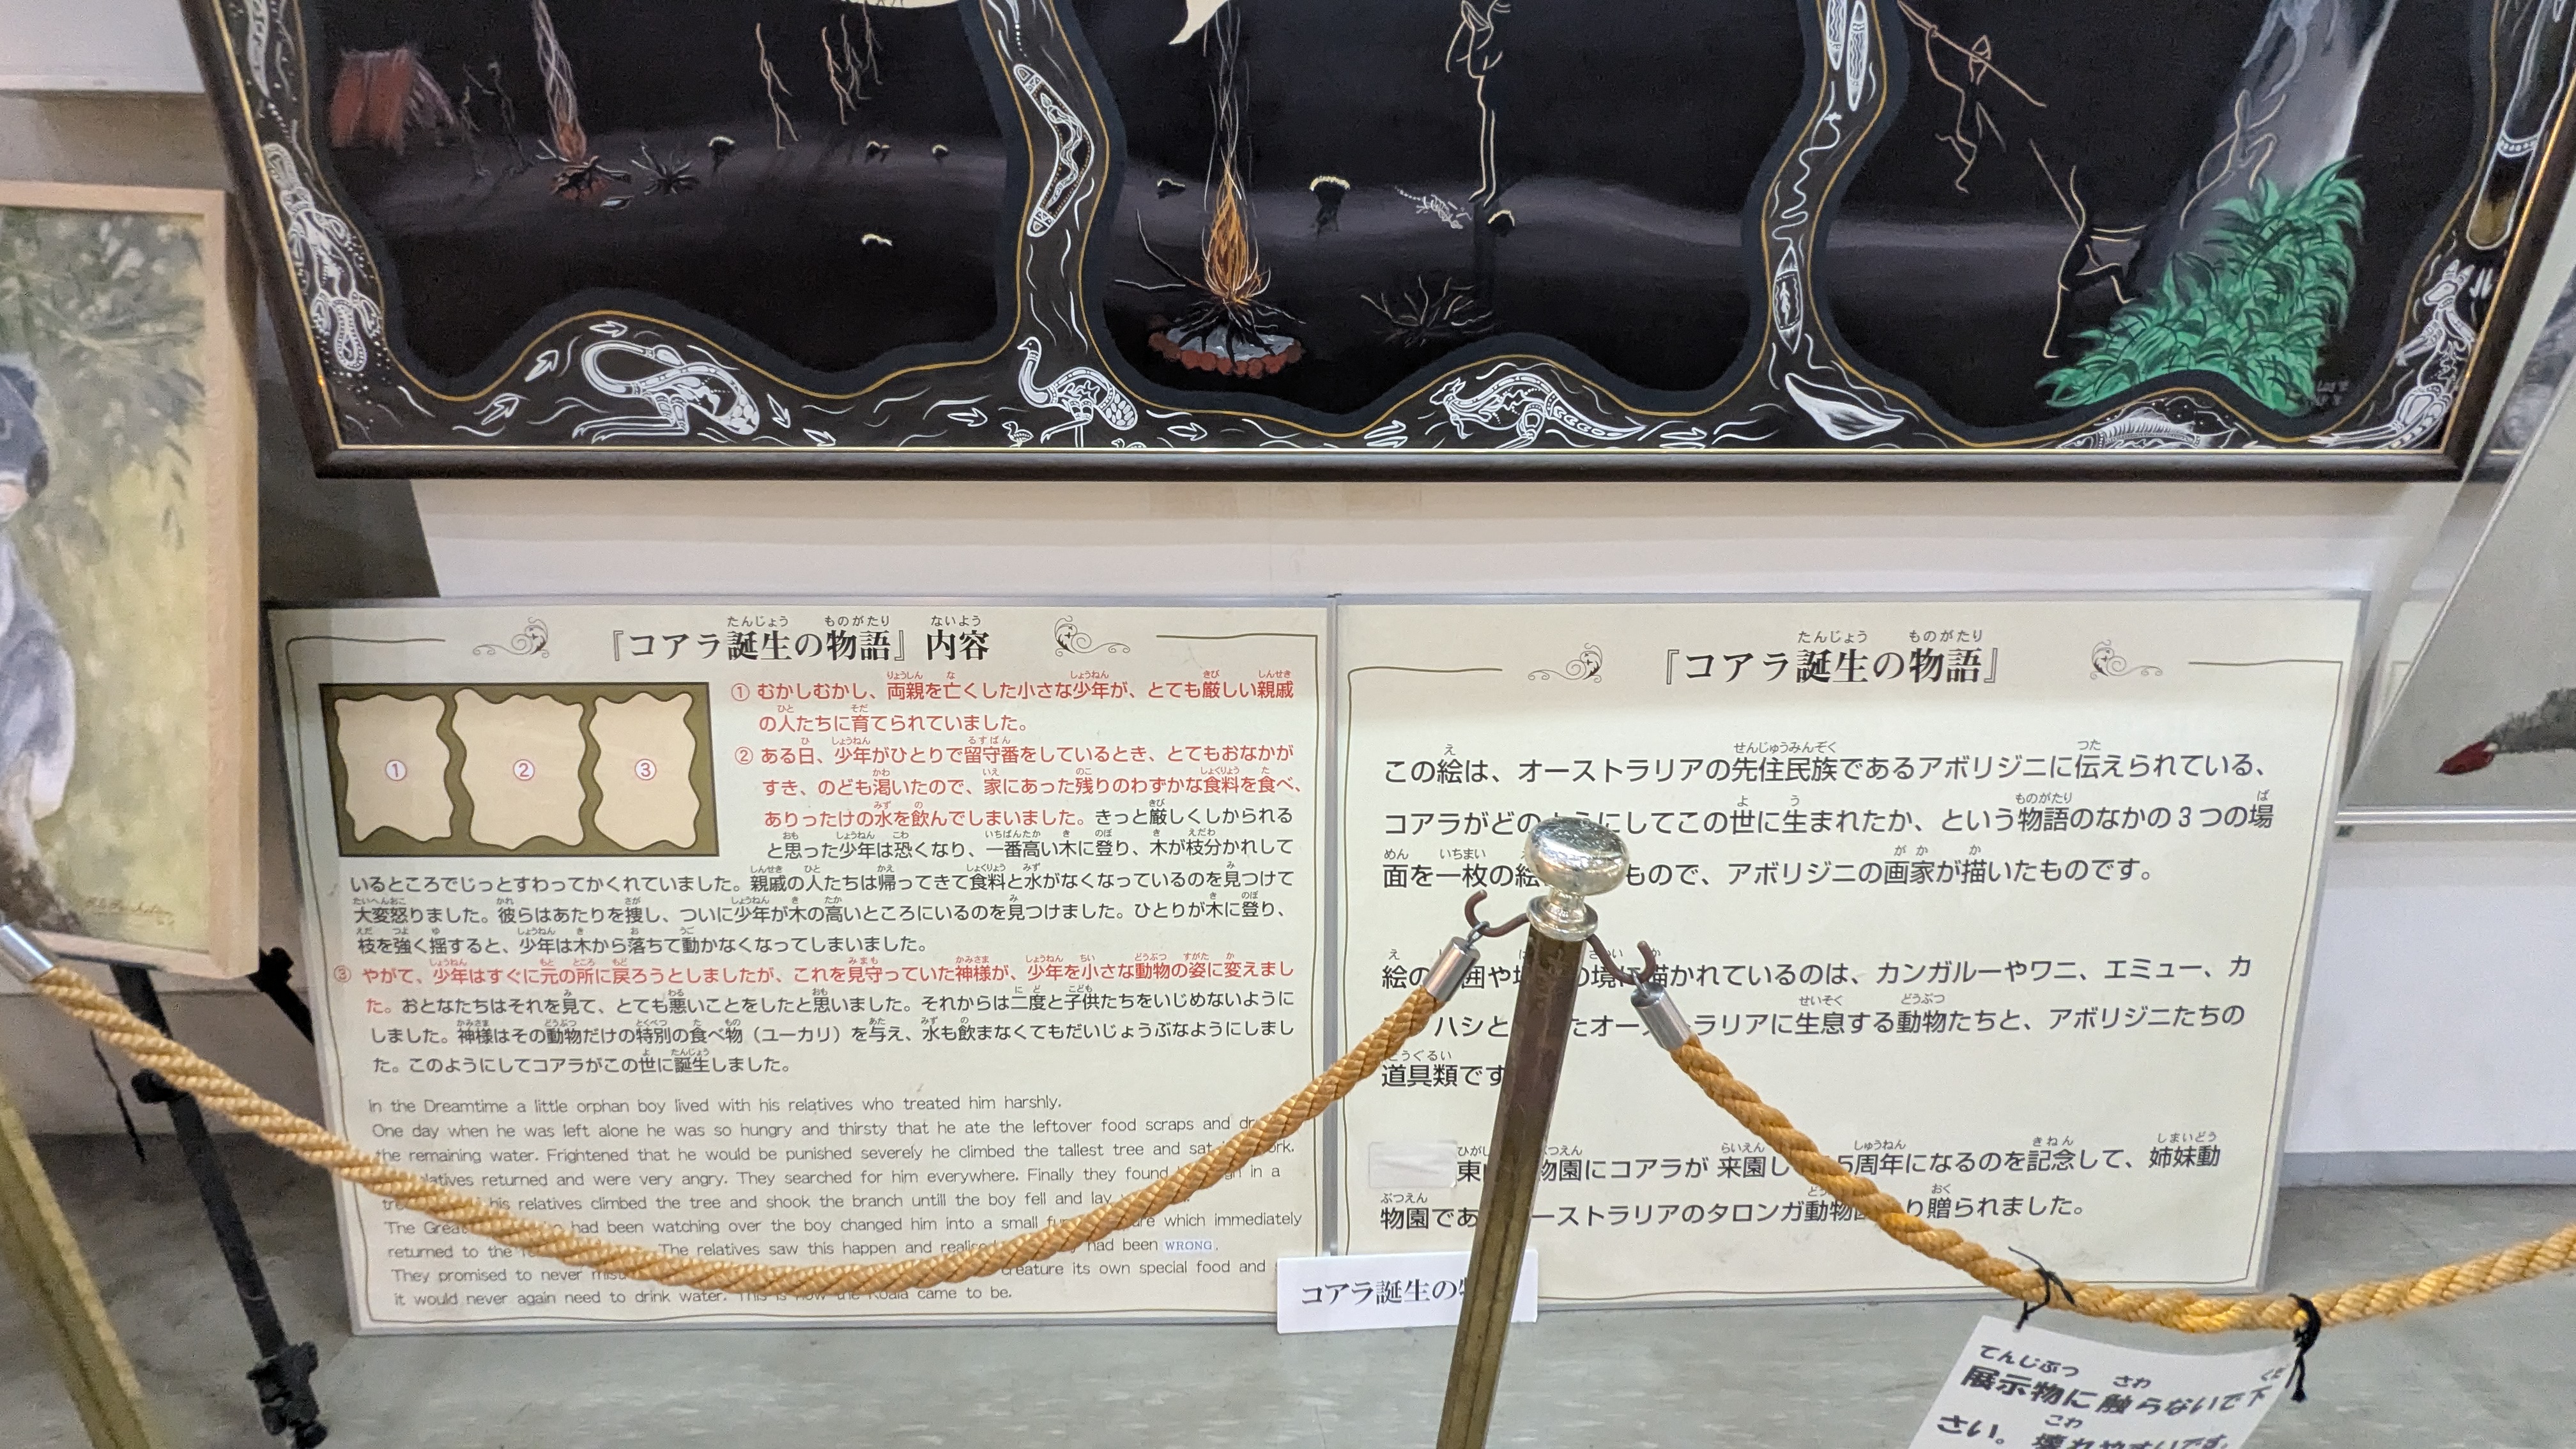 『コアラ誕生の物語』内容
① むかしむかし、両親を亡くした小さな少年が、とても厳しい親戚
の人たちに育てられていました。
② ある日、少年がひとりで留守番をしているとき、とてもおなかが
すき、のども渇いたので、家にあった残りのわずかな食料を食べ、
ありったけの水を飲んでしまいました。きっと厳しくしかられる
と思った少年は恐くなり、一番高い木に登り、木が枝分かれして
いるところでじっとすわってかくれていました。親戚の人たちは帰ってきて食料と水がなくなっているのを見つけて
大変怒りました。彼らはあたりを捜し、ついに少年が木の高いところにいるのを見つけました。ひとりが木に登り、
枝を強く揺すると、少年は木から落ちて動かなくなってしまいました。
③ やがて、少年はすぐに元の所に戻ろうとしましたが、これを見守っていた神様が、少年を小さな動物の姿に変えまし
た。おとなたちはそれを見て、とても悪いことをしたと思いました。それからは二度と子供たちをいじめないように
しました。神様はその動物だけの特別の食べ物（ユーカリ）を与え、水も飲まなくてもだいじょうぶなようにしまし
た。このようにしてコアラがこの世に誕生しました。
In the Dreamtime a little orphan boy lived with his relatives who treated him harshly.
One day when he was left alone he was so hungry and thirsty that he ate the leftover food scraps and
the remaining water. Frightened that he would be punished severely he climbed the tallest tree and sat
returned and were very angry. They searched for him everywhere. Finally they found in a
his relatives climbed the tree and shook the branch untill the boy fell and lay
The Great had been watching over the boy changed him into a small which immediately
returned to the The relatives saw this happen and had been WRONG.
They promised to never creature its own special food and
it would never again need to drink water. came to be.
① ② ③
『コアラ誕生の物語』
この絵は、オーストラリアの先住民族であるアボリジニに伝えられている、
コアラがどのようにしてこの世に生まれたか、という物語のなかの3つの場
面を一枚の絵 もので、アボリジニの画家が描いたものです。
絵の 囲や の境に描かれているのは、カンガルーやワニ、エミュー、カ
ハシと たオーストラリアに生息する動物たちと、アボリジニたちの
道具類です
東 物園にコアラが来園し 5周年になるのを記念して、姉妹動
物園であ ーストラリアのタロンガ動物 り贈られました。
コアラ誕生の
展示物に触らないで下
さい。壊れやすいです